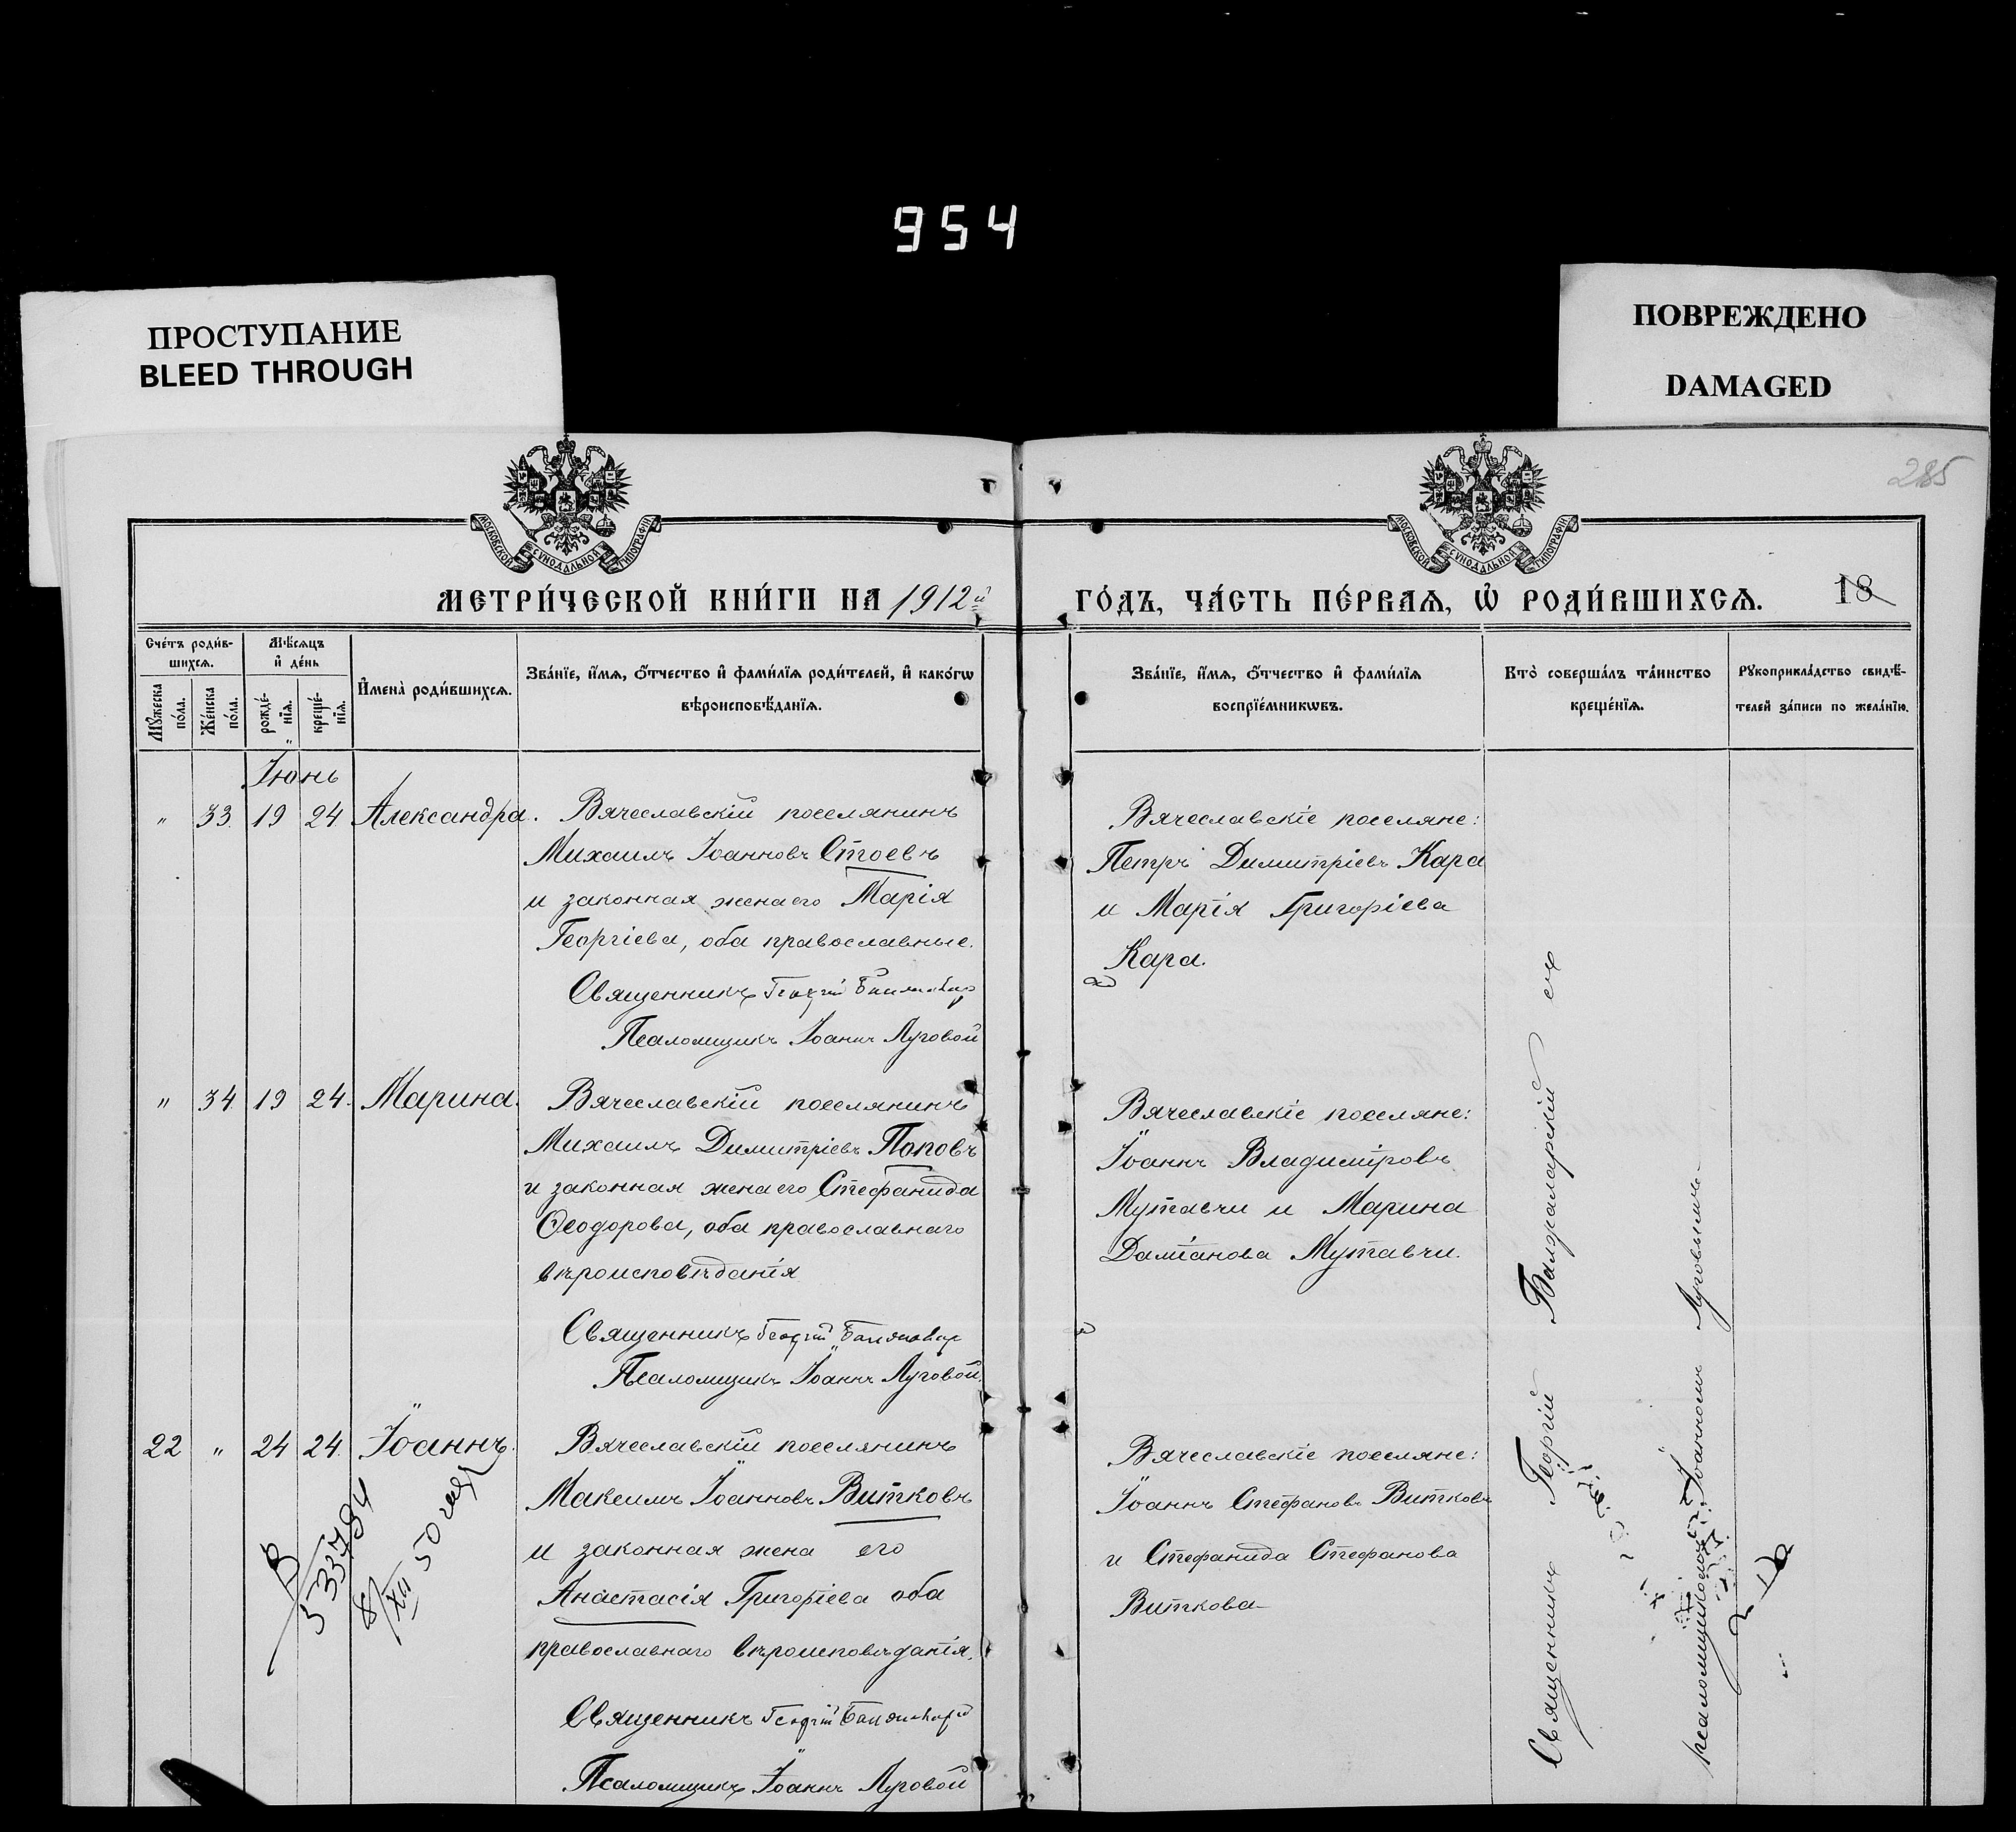 954
ПРОСТУПАНИЕ
BLEED THROUGH
ПОВРЕЖДЕНО
DAMAGED
285
МОСКОВСКОЙ СѴНОДАЛЬНОЙ ТИПОГРАФІИ
МОСКОВСКОЙ СѴНОДАЛЬНОЙ ТИПОГРАФІИ
МЕТРИ́ЧЕСКОЙ КНИ́ГИ НА 1912й
ГО́ДЪ, ЧА́СТЬ ПЕ́РВАѦ, Ѡ҆ РОДИ́ВШИХСѦ.
18
Сче́тъ роди́в-
шихсѧ.
Мꙋ́жеска
по́ла.
Же́нска
по́ла.
Мѣ́сѧцъ
и҆ де́нь
рожде́-
нїѧ.
креще́-
нїѧ.
И҆мена̀ роди́вшихсѧ.
Зва́нїе, и҆́мѧ, ѻ҆́тчество и҆ фами́лїѧ роди́телей, и҆ како́гѡ
вѣ́роисповѣ́данїѧ.
Зва́нїе, и҆́мѧ, ѻ҆́тчество и҆ фами́лїѧ
воспрїе́мникѡвъ.
Кто̀ соверша́лъ та́инство
креще́нїѧ.
Рꙋкоприкла́дство свидѣ́-
телей за́писи по жела́нїю.
Іюнь
" 33. 19 24 Александра.
Вячеславскій поселянинъ
Михаилъ Іоанновъ Стоевъ
и законная жена его Марія
Георгіева, оба православные.
Священникъ Георгій
Псаломщикъ Іоаннъ Луговой
Вячеславскіе поселяне:
Петръ Димитріевъ Кара
и Марія Григоріева
Кара.
" 34. 19 24. Марина.
Вячеславскій поселянинъ
Михаилъ Димитріевъ Поповъ
и законная жена его Стефанида
Ѳеодорова, оба православнаго
вѣроисповѣданія
Священникъ Георгій
Псаломщикъ Іоаннъ Луговой.
Вячеславскіе поселяне:
Іоаннъ Владиміровъ
Мутавчи и Марина
Даміанова Мутавчи.
22 " 24 24. Іоаннъ.
Вячеславскій поселянинъ
Максимъ Іоанновъ Витковъ
и законная жена его
Анастасія Григоріева оба
православнаго вѣроисповѣданія.
Священникъ Георгій
Псаломщикъ Іоаннъ Луговой
Вячеславскіе поселяне:
Іоаннъ Стефановъ Витковъ
и Стефанида Стефанова
Виткова
8/XII 50
Священникъ Георгій Балжаларскій съ
псаломщикомъ Іоанномъ Луговымъ.